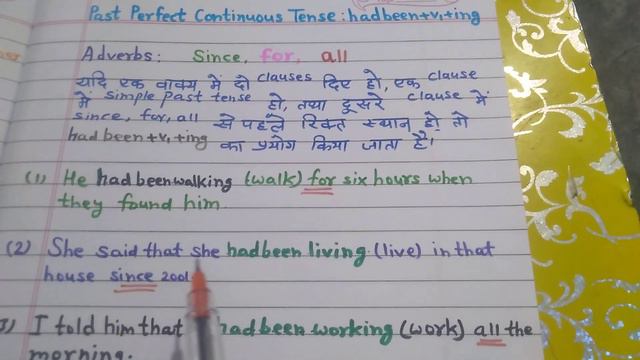 Past Perfect Continuous Tense: had been+v₁+ing
Adverbs: Since, for, all
यदि एक वाक्य में दो clauses दिए हो, एक clause
में simple past tense हो, तथा दूसरे clause में
since, for, all से पहले रिक्त स्थान हो तो
had been+v₁+ing का प्रयोग किया जाता है।
(1) He had been walking (walk) for six hours when
they found him
(2) She said that she had been living (live) in that
house since 2001
I told him that had been working (work) all the
morning.